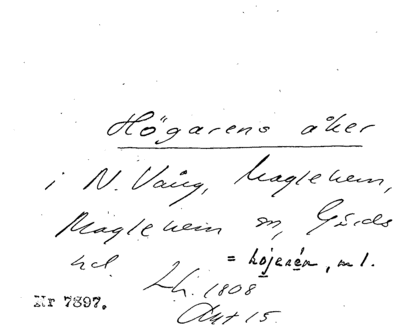 Högarens åker
i N. Vång, Maglehem,
Maglehem sn, Gärds
hd = höjerén, m l.
Lh. 1808
Nr 7897. Akt 15.